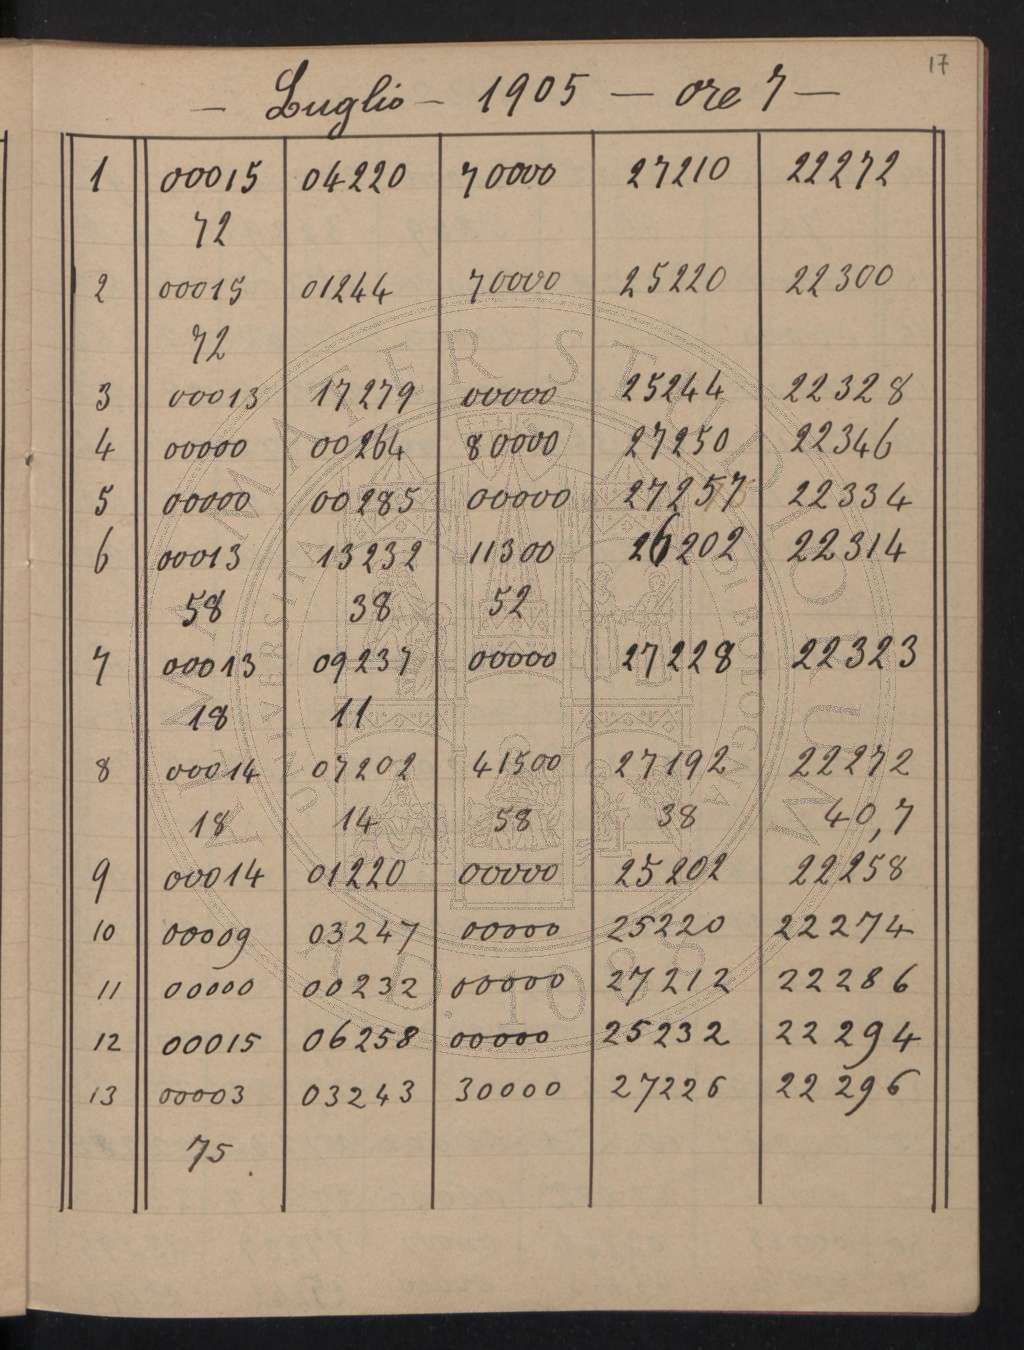 17
— Luglio — 1905 — ore 7 —
1 00015 04220 70000 27210 22272
72
2 00015 01244 70000 25220 22300
72
3 00013 17279 00000 25244 22328
4 00000 00264 80000 27250 22346
5 00000 00285 00000 27257 22334
6 00013 13232 11300 26202 22314
58 38 52
7 00013 09237 00000 27228 22323
18 11
8 00014 07202 41500 27192 22272
18 14 58 38 40,7
9 00014 01220 00000 25202 22258
10 00009 03247 00000 25220 22274
11 00000 00232 00000 27212 22286
12 00015 06258 00000 25232 22294
13 00003 03243 30000 27226 22296
75.